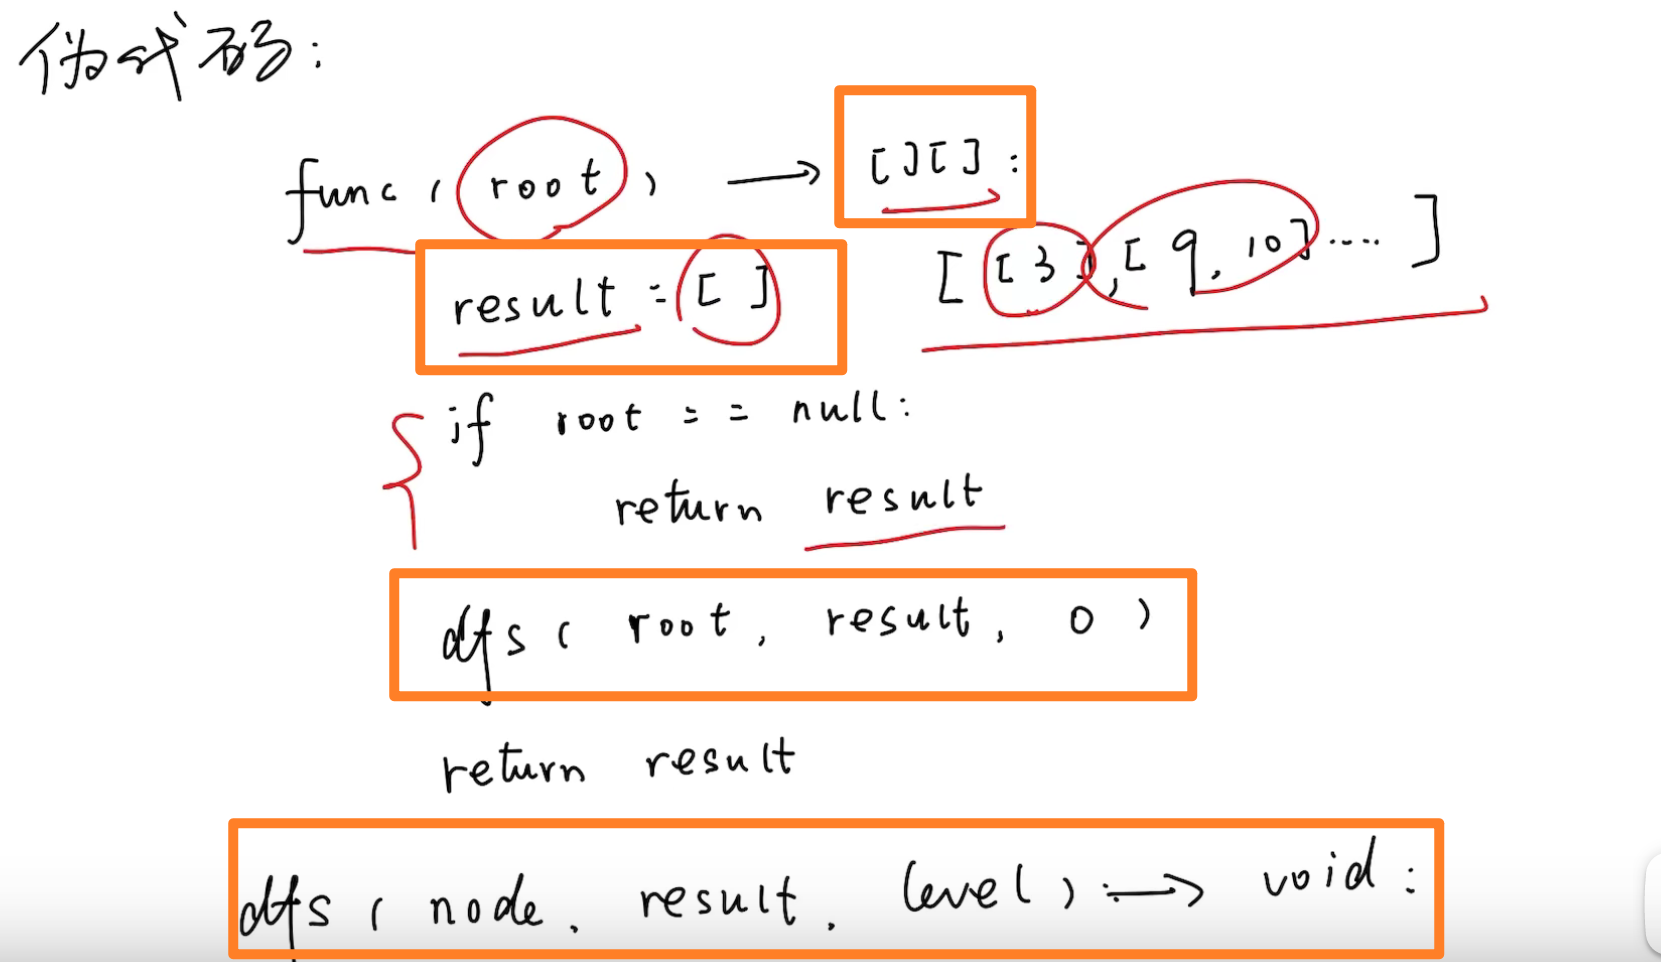 伪代码:
func ( root ) → [][] :
result = [ ]
[ [ 3 ], [ 9, 10 ] .... ]
if root == null:
return result
dfs ( root, result, 0 )
return result
dfs ( node, result, level ) :→ void :